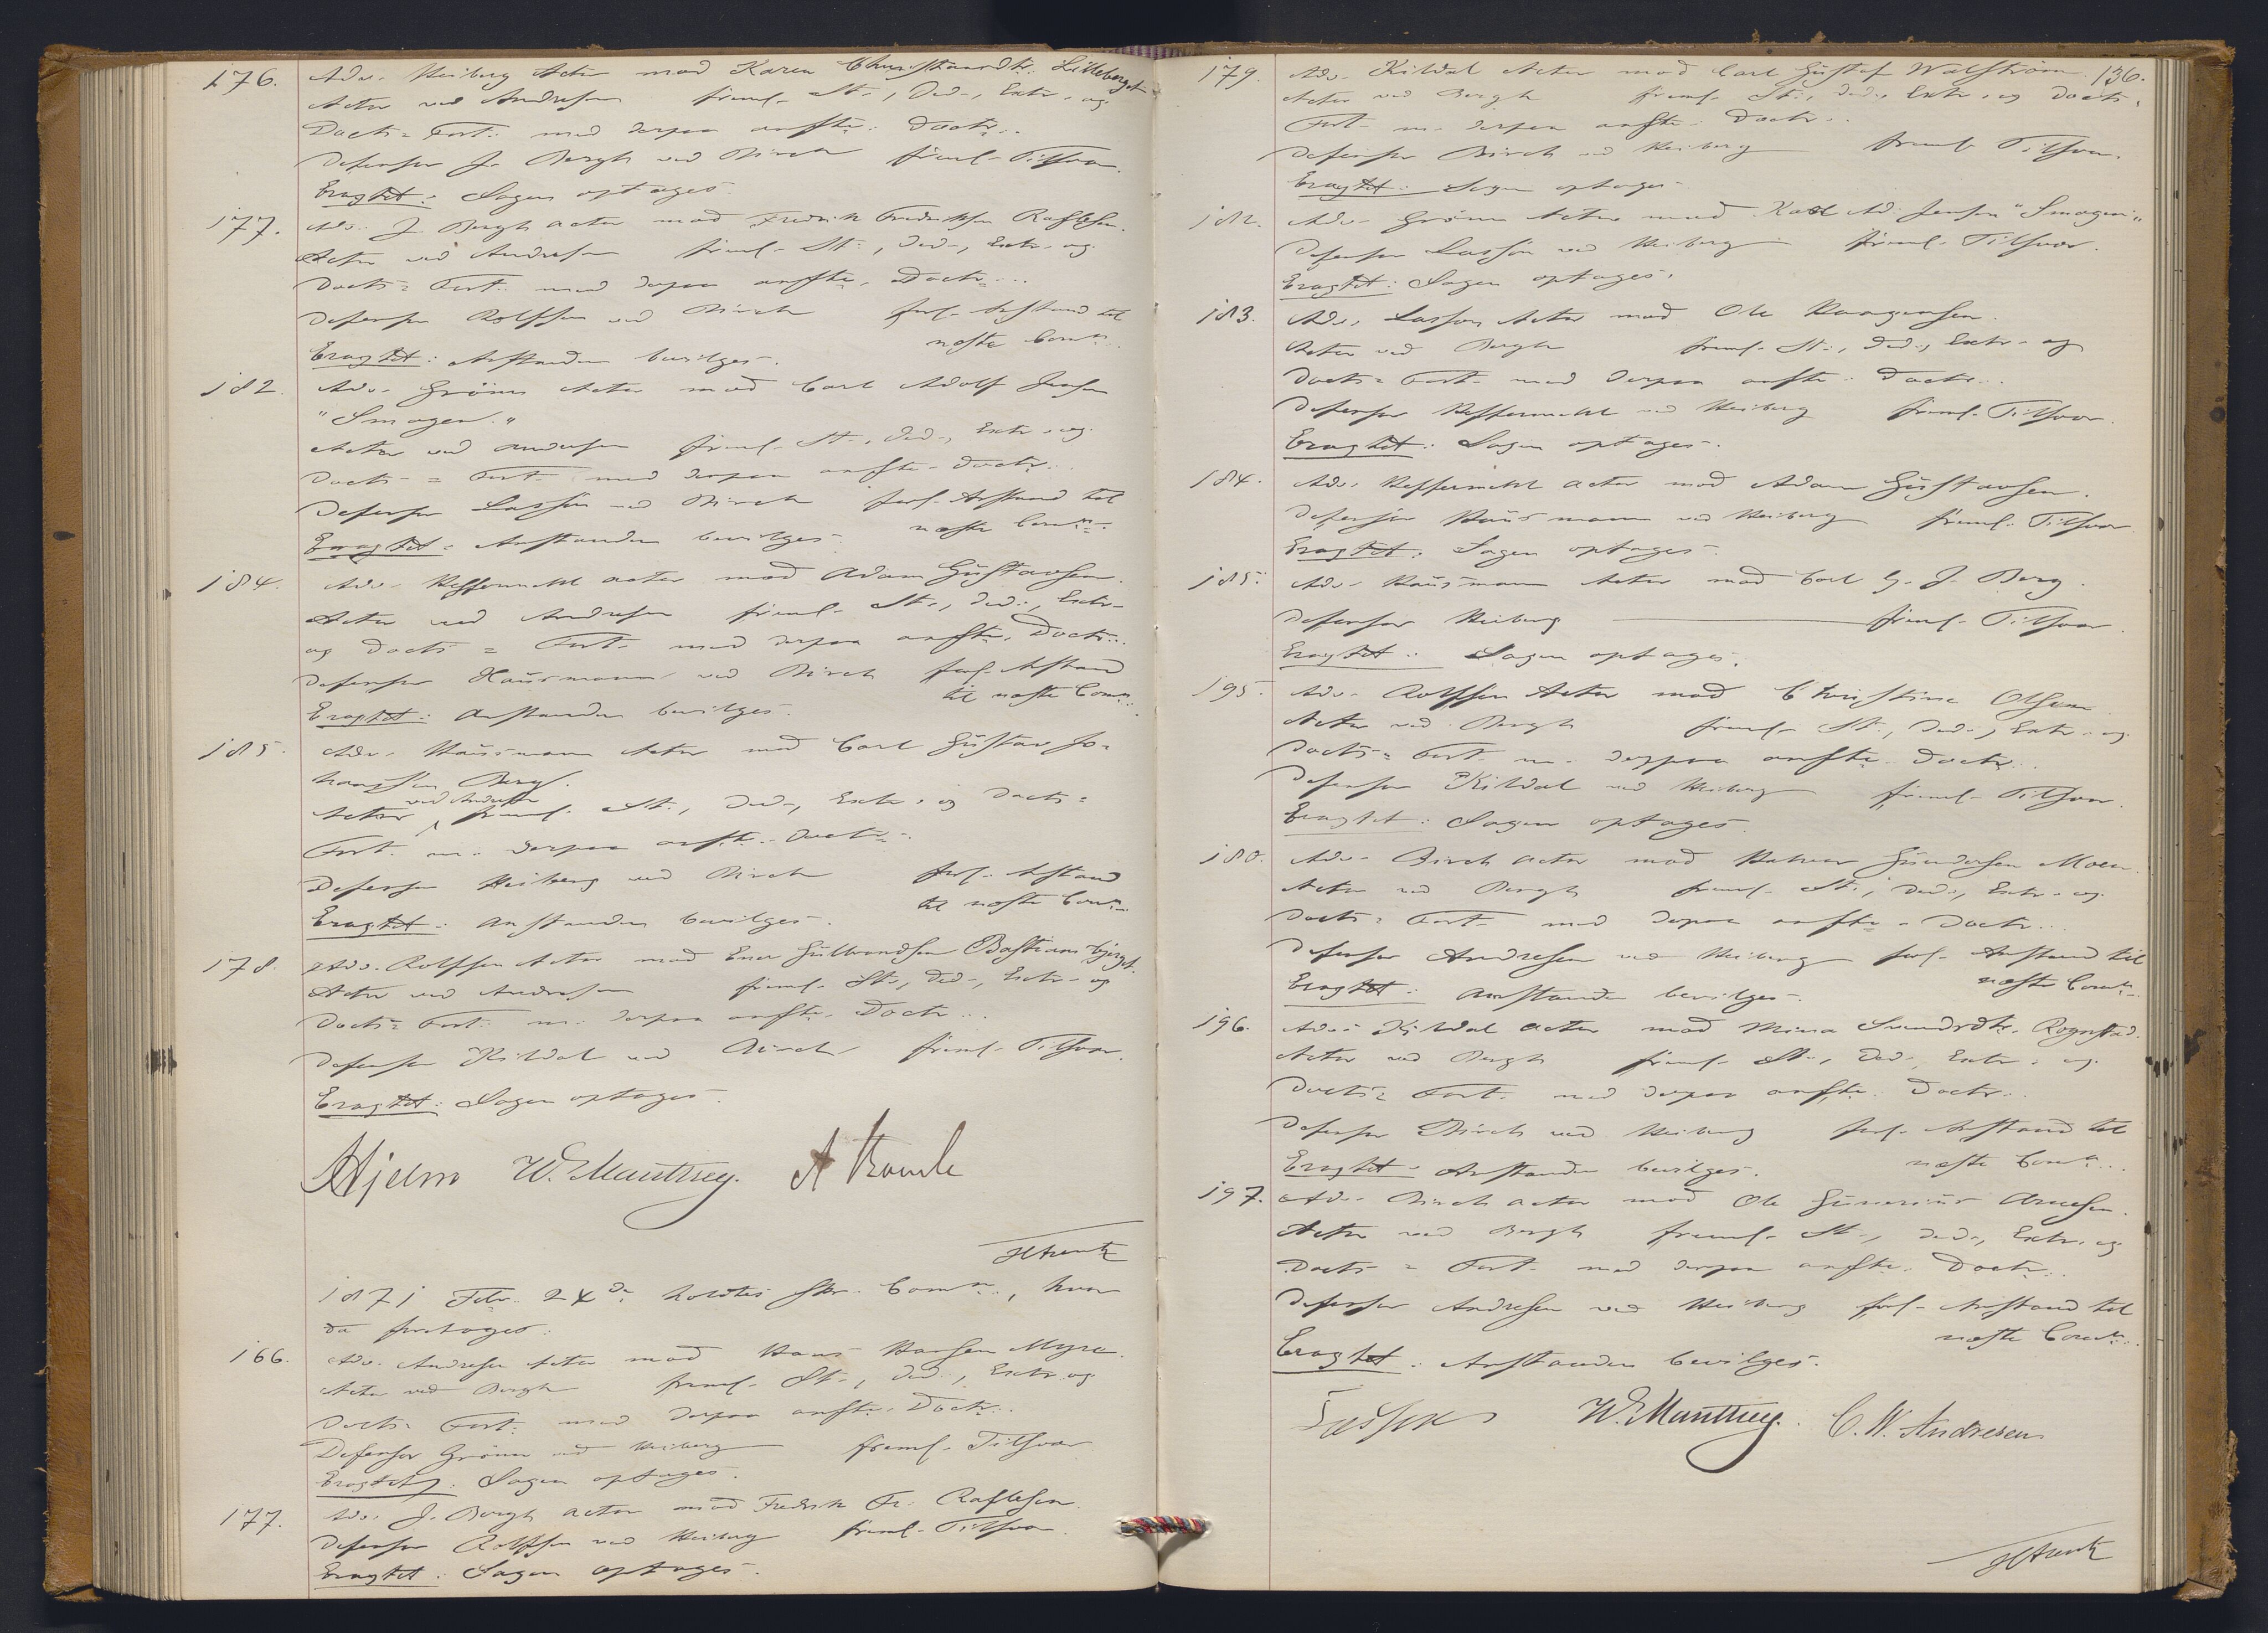 176. Adv. Heiberg Actor mod Karen Christiansdtr. Lilleberget
Actor ved Andresen freml. St., Ded., Extr. og
Docts = Fort. med derpaa anførte Doctr.
Defensor J. Bergh ved Birch freml. Tilsvar.
Eragtet: Sagen optages.
177. Adv. J. Bergh Actor mod Fredrik Fredriksen Raflesen.
Actor ved Andresen freml. St., Ded., Extr. og
Docts = Fort. med derpaa anførte Doctr.
Defensor Rolffsen ved Birch forl. Anstand til
næste Cons.
Eragtet: Anstanden bevilges.
182. Adv. Grönn Actor mod Carl Adolf Jensen
"Smogen."
Actor ved Andresen freml. St., Ded., Extr. og
Docts = Fort. med derpaa anførte Doctr.
Defensor Lasson ved Birch forl. Anstand til
næste Cons.
Eragtet: Anstanden bevilges.
184. Adv. Heffermehl Actor mod Adam Gustavsen.
Actor ved Andresen freml. St., Ded., Extr.
og Docts = Fort. med derpaa anførte Doctr.
Defensor Hausmann ved Birch forl. Anstand
til næste Cons.
Eragtet: Anstanden bevilges.
185. Adv. Hausmann Actor mod Carl Gustav Jo=
hansen Berg.
Actor ved Andresen freml. St., Ded., Extr. og Docts =
Fort. m. derpaa anførte Doctr.
Defensor Heiberg ved Birch forl. Anstand
til næste Cons.
Eragtet: Anstanden bevilges.
178. Adv. Rolffsen Actor mod Gulbrandsen
Actor ved Andresen freml. St., Ded., Extr. og
Docts = Fort. m. derpaa anførte Doctr.
Defensor Kildal ved Birch freml. Tilsvar.
Eragtet: Sagen optages.
Hjelm W. Manthey.
1871 Febr. 24de holdtes , hvor
da foretoges:
166. Adv. Andresen Actor mod Hans Hansen Myre.
Actor ved Bergh freml. St., Ded., Extr. og
Docts = Fort. med derpaa anførte Doctr.
Defensor Grönn ved Heiberg freml. Tilsvar
Eragtet: Sagen optages.
177. Adv. J. Bergh Actor mod Fredrik Fr. Raflesen.
Defensor Rolffsen ved Heiberg freml. Tilsvar.
Eragtet: Sagen optages.
136.
179. Adv. Kildal Actor mod Carl Gustaf Walström.
Actor ved Bergh freml. St., Ded., Extr. og Docts =
Fort. m. derpaa anførte Doctr.
Defensor Birch ved Heiberg freml. Tilsvar.
Eragtet: Sagen optages.
182. Adv. Grönn Actor mod Karl Ad. Jensen "Smogen"
Defensor Lasson ved Heiberg freml. Tilsvar.
Eragtet: Sagen optages.
183. Adv. Lasson Actor mod Ole Haagensen.
Actor ved Bergh freml. St., Ded., Extr. og
Docts = Fort. med derpaa anførte Doctr.
Defensor Heffermehl ved Heiberg freml. Tilsvar.
Eragtet: Sagen optages.
184. Adv. Heffermehl Actor mod Adam Gustavsen.
Defensor Hausmann ved Heiberg freml. Tilsvar
Eragtet: Sagen optages.
185. Adv. Hausmann Actor mod Carl G. J. Berg.
Defensor Heiberg freml. Tilsvar.
Eragtet: Sagen optages.
195. Adv. Rolffsen Actor mod Christine Olsen
Actor ved Bergh freml. St., Ded., Extr. og
Docts = Fort. m. derpaa anførte Doctr.
Defensor Kildal ved Heiberg freml. Tilsvar.
Eragtet: Sagen optages.
180. Adv. Birch Actor mod Halvor Gundersen Moen.
Actor ved Bergh freml. St., Ded., Extr. og
Docts = Fort. med derpaa anførte Doctr.
Defensor Andresen ved Heiberg forl. Anstand til
næste Cons.
Eragtet: Anstanden bevilges.
196. Adv. Kildal Actor mod Mina Rognstad.
Actor ved Bergh freml. St., Ded., Extr. og
Docts = Fort. med derpaa anførte Doctr.
Defensor Birch ved Heiberg forl. Anstand til
næste Cons.
Eragtet: Anstanden bevilges.
197. Adv. Birch Actor mod Ole Gunerius Arnesen.
Actor ved Bergh freml. St., Ded., Extr. og
Docts = Fort. med derpaa anførte Doctr.
Defensor Andresen ved Heiberg forl. Anstand til
næste Cons.
Eragtet: Anstanden bevilges.
W. Manthey. C. W. Andresen